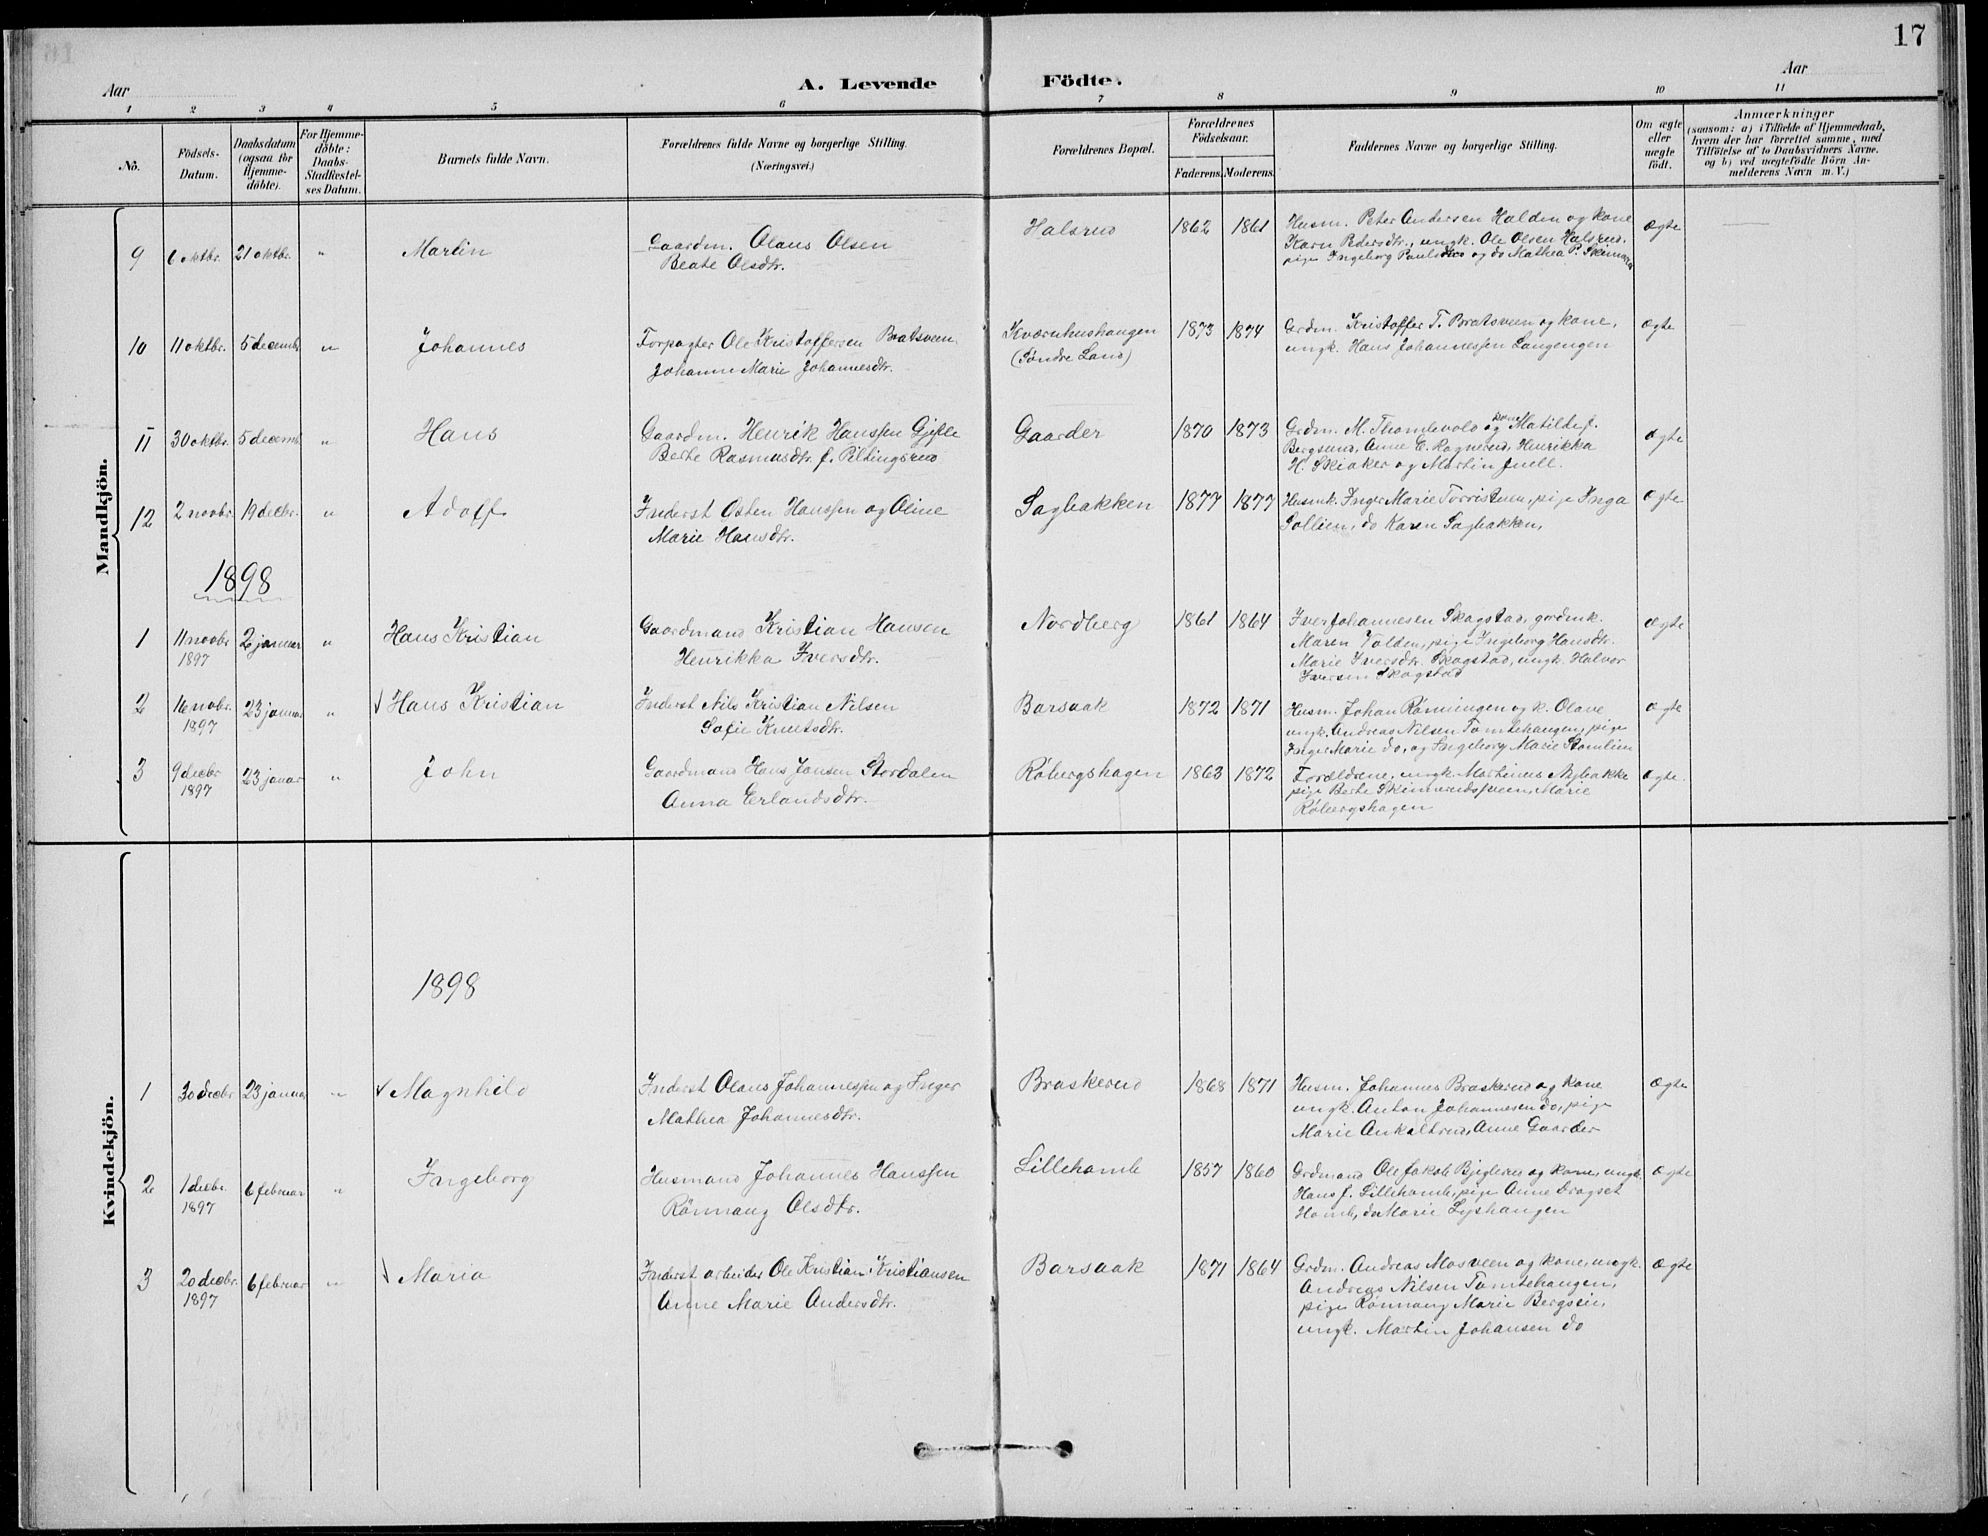 17
Aar
A. Levende Födte.
Aar
1 2 3 4 5 6 7 8 9 10 11
No.
Födsels-Datum.
Daabsdatum (ogsaa for Hjemmedöbte).
For Hjemmedöbte: Daabs-Stadfæstelses Datum.
Barnets fulde Navn.
Forældrenes fulde Navne og borgerlige Stilling. (Næringsvei.)
Forældrenes Bopæl.
Forældrenes Födselsaar.
Faderens. Moderens.
Faddernes Navne og borgerlige Stilling.
Om ægte eller uægte födt.
Anmærkninger
(saasom: a) i Tilfælde af Hjemmedaab, hvem der har forrettet samme, med Tilföielse af to Daabsvidners Navne, og b) ved uægtefödte Börn Anmelderens Navn m. V.)
Mandkjön.
9 6 oktbr. 21 oktbr. " Martin Gaardm. Olaus Olsen Halsrud 1862 1861 Husm. Peter Andersen Halden og kone ægte
Beate Olsdtr. Karen Pedersdtr., ungk. Ole Olsen Halsrud,
pige Ingeborg og do Mathea P.
10 11 oktbr. 5 decemb. " Johannes Forpagter Ole Kristoffersen Bratsveen Kværnhushaugen 1873 1874 Grdm. Kristoffer T. Bratsveen og kone, ægte
Johanne Marie Johannesdtr. (Søndre Land) ungk. Hans Johannessen Langengen
11 30 oktbr. 5 decemb. " Hans Gaardm. Henrik Hanssen Gjefle Gaarder 1870 1873 Grdm. M. Thomlevold og Matilde f. ægte
Berte Rasmusdtr. f. Piltingsrud Bergsund, Anne E. Rognerud, Henrikka
H. Skiaker og Martin Juell.
12 2 novbr. 19 decbr. " Adolf Inderst Østen Hanssen og Oline Sagbakken 1877 1877 Husmk. Inger Marie pige Inga ægte
Marie Hansdtr. Sollien, do Karen Sagbakken,
1898
1 11 novbr 1897 2 januar " Hans Kristian Gaardmand Kristian Hansen Nordberg 1861 1864 Iver Johannesen Skogstad, grdmk. ægte
Henrikka Iversdtr. Maren Volden, pige Ingeborg Hansdtr.
Marie Iversdtr. Skogstad, ungk. Halvor
Iversen Skogstad
2 16 novbr. 1897 23 januar " Hans Kristian Inderst Nils Kristian Nilsen Barsaak 1872 1871 Husm. Johan Rønningen og k. Olave ægte
Sofie Knutsdtr. ungk. Andreas Nilsen Tomtehaugen, pige
Inger Marie do, og Ingeborg Marie Stomlien
3 9 decbr 1897 23 januar " John Gaardmand Hans Jonsen Stordalen Røbergshagen 1863 1872 Forældrene, ungk. Martinus ægte
Anna Erlandsdtr. pige Berte Skinnerudsveen, Marie
Røbergshagen
Kvindekjön.
1898
1 30 decbr 23 januar " Magnhild Inderst Olaus Johannessen og Inger Braskerud 1868 1871 Husm. Johannes Braskerud og kone ægte
Mathea Johannesdtr. ungk. Anton Johannesen do, pige
Marie Ankaltrud, Anne Gaarder
2 1 decbr. 1897 6 februar " Ingeborg Husmand Johannes Hanssen Lillehomb 1857 1860 Grdmand Ole Jakob og kone, ungk. ægte
Rønnaug Olsdtr. Hans J. Lillehomb, pige Anne Dragset
Homb, do Marie Lyshaugen
3 20 decbr. 1897 6 februar " Maria Inderst arbeider Ole Kristian Kristiansen Barsaak 1871 1864 Grdm. Andreas Mosveen og kone, ungk. ægte
Anne Marie Andersdtr. Andreas Nilsen Tomtehaugen,
pige Rønnaug Marie Bergseie,
ungk. Martin Johansen do